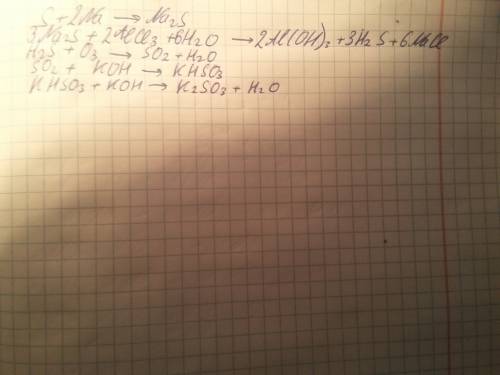 S + 2Na → Na₂S
3Na₂S + 2AlCl₃ + 6H₂O → 2Al(OH)₃ + 3H₂S + 6NaCl
H₂S + O₃ → SO₂ + H₂O
SO₂ + KOH → KHSO₃
KHSO₃ + KOH → K₂SO₃ + H₂O